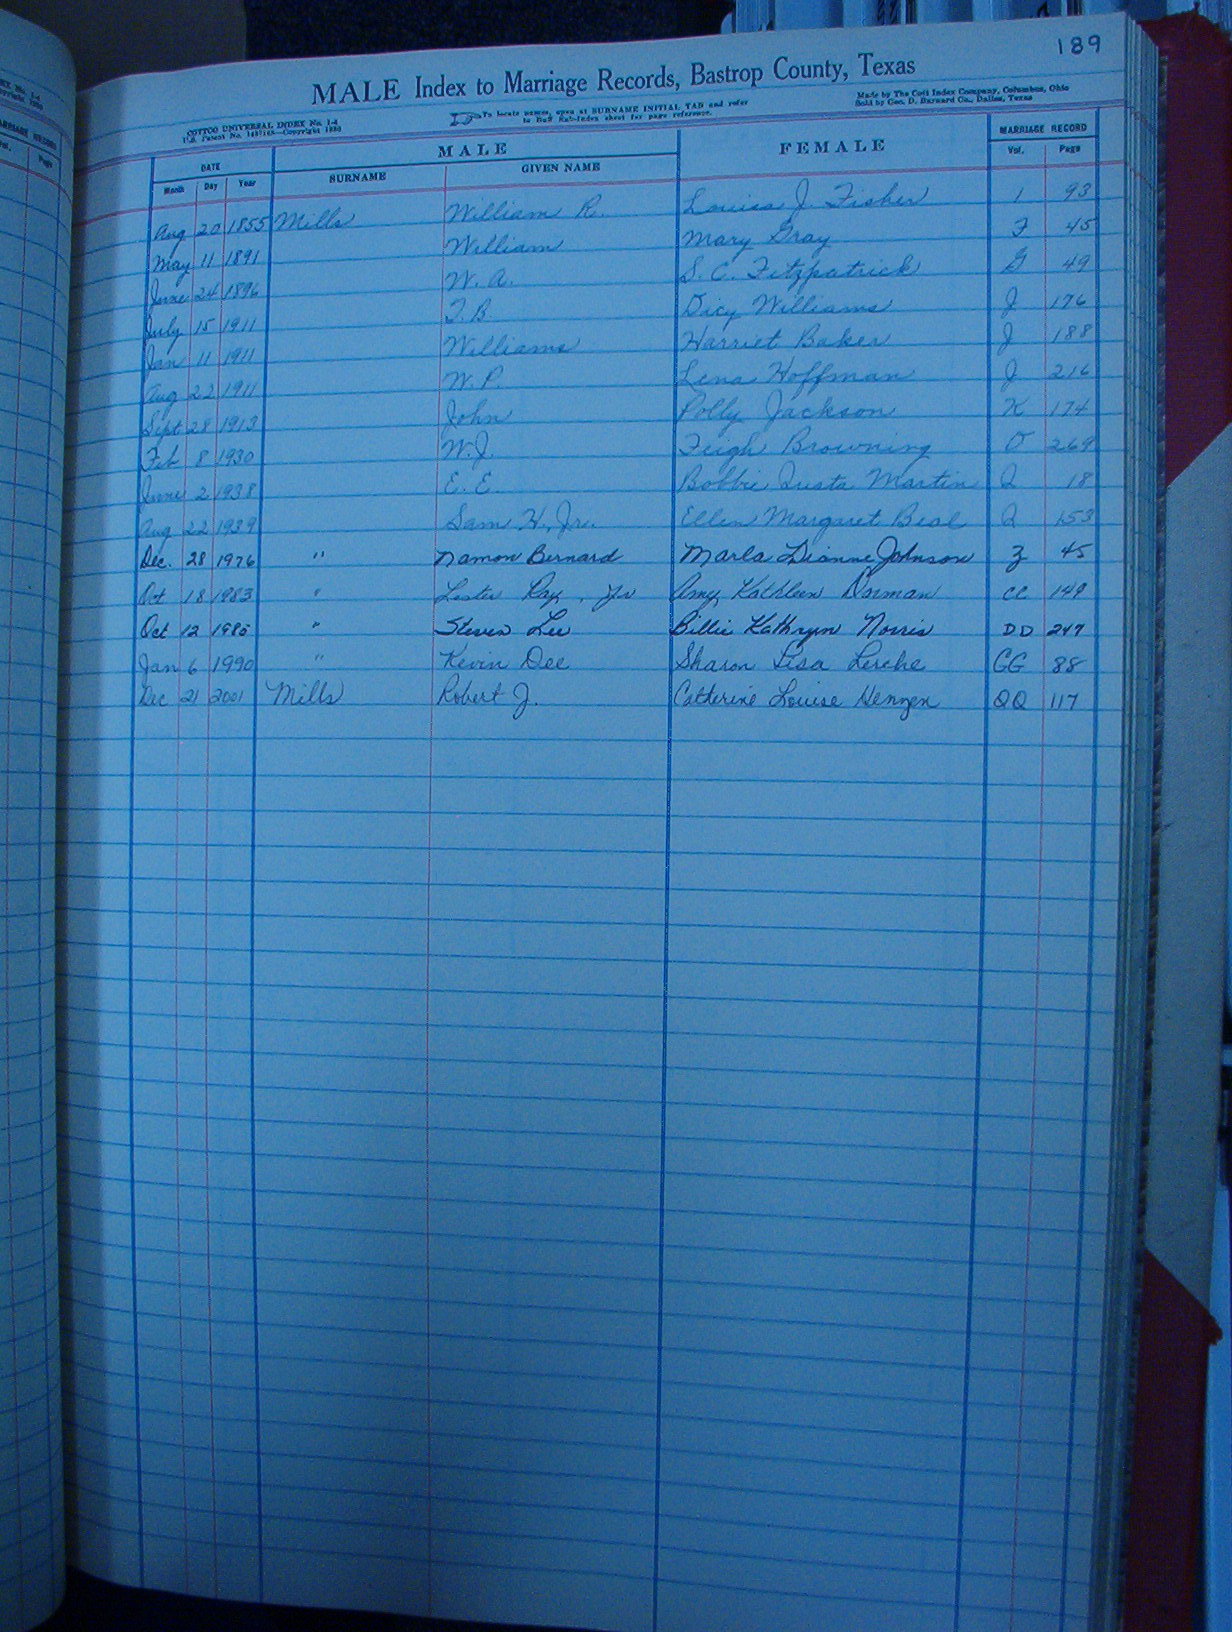 189
MALE Index to Marriage Records, Bastrop County, Texas
COTTCO UNIVERSAL INDEX No. 1-4
To locate names, open at SURNAME INITIAL TAB and refer
to Buff Sub-Index sheet for page reference.
Made by The Cott Index Company, Columbus, Ohio
Sold by Geo. D. Barnard Co., Dallas, Texas
DATE MALE FEMALE MARRIAGE RECORD
Month Day Year SURNAME GIVEN NAME Vol. Page
Aug 20 1855 Mills William R. Louisa J. Fisher 1 93
May 11 1891 William Mary Gray F 45
June 24 1896 W. A. S. C. Fitzpatrick G 49
July 15 1911 T. B. Dicy Williams J 176
Jan 11 1911 Williams Harriet Baker J 188
Aug 22 1911 W. P. Lena Hoffman J 216
Sept 28 1913 John Polly Jackson K 174
Feb 8 1930 W. J. Feigh Browning O 269
June 2 1938 E. E. Bobbie Martin Q 18
Aug 22 1939 Sam H., Jr. Ellen Margaret Beal Q 153
Dec. 28 1976 " Damon Bernard Marla Dianne Johnson Z 45
Oct 18 1983 " Lester Ray, Jr Amy Kathleen Dorman CC 149
Oct 12 1985 " Steven Lee Billie Kathryn Norris DD 247
Jan 6 1990 " Kevin Dee Sharon Lisa Lerche GG 88
Dec 21 2001 Mills Robert J. Catherine Louise Henzen QQ 117